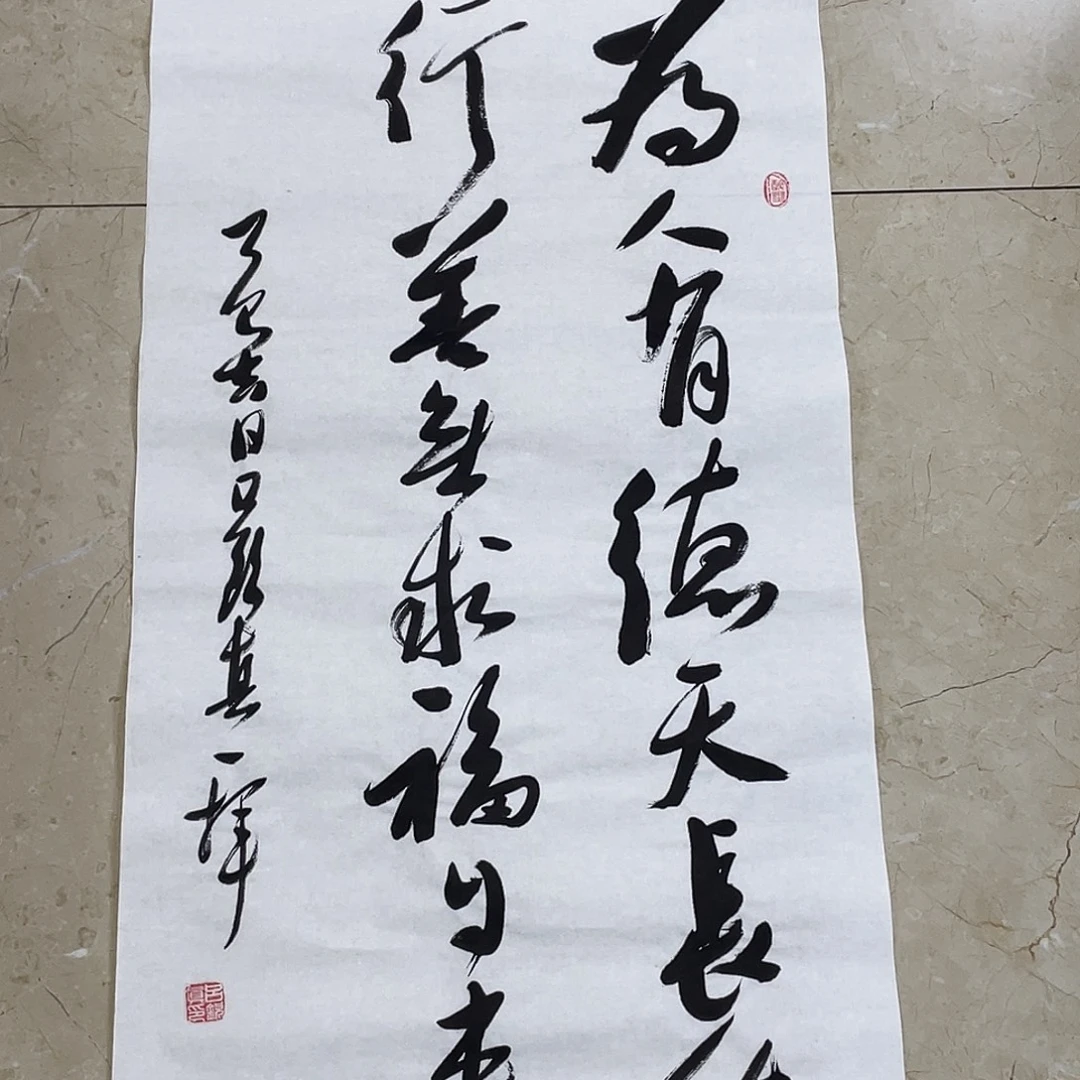 為人有德天長
行善無求福自來
吉日吕銳真